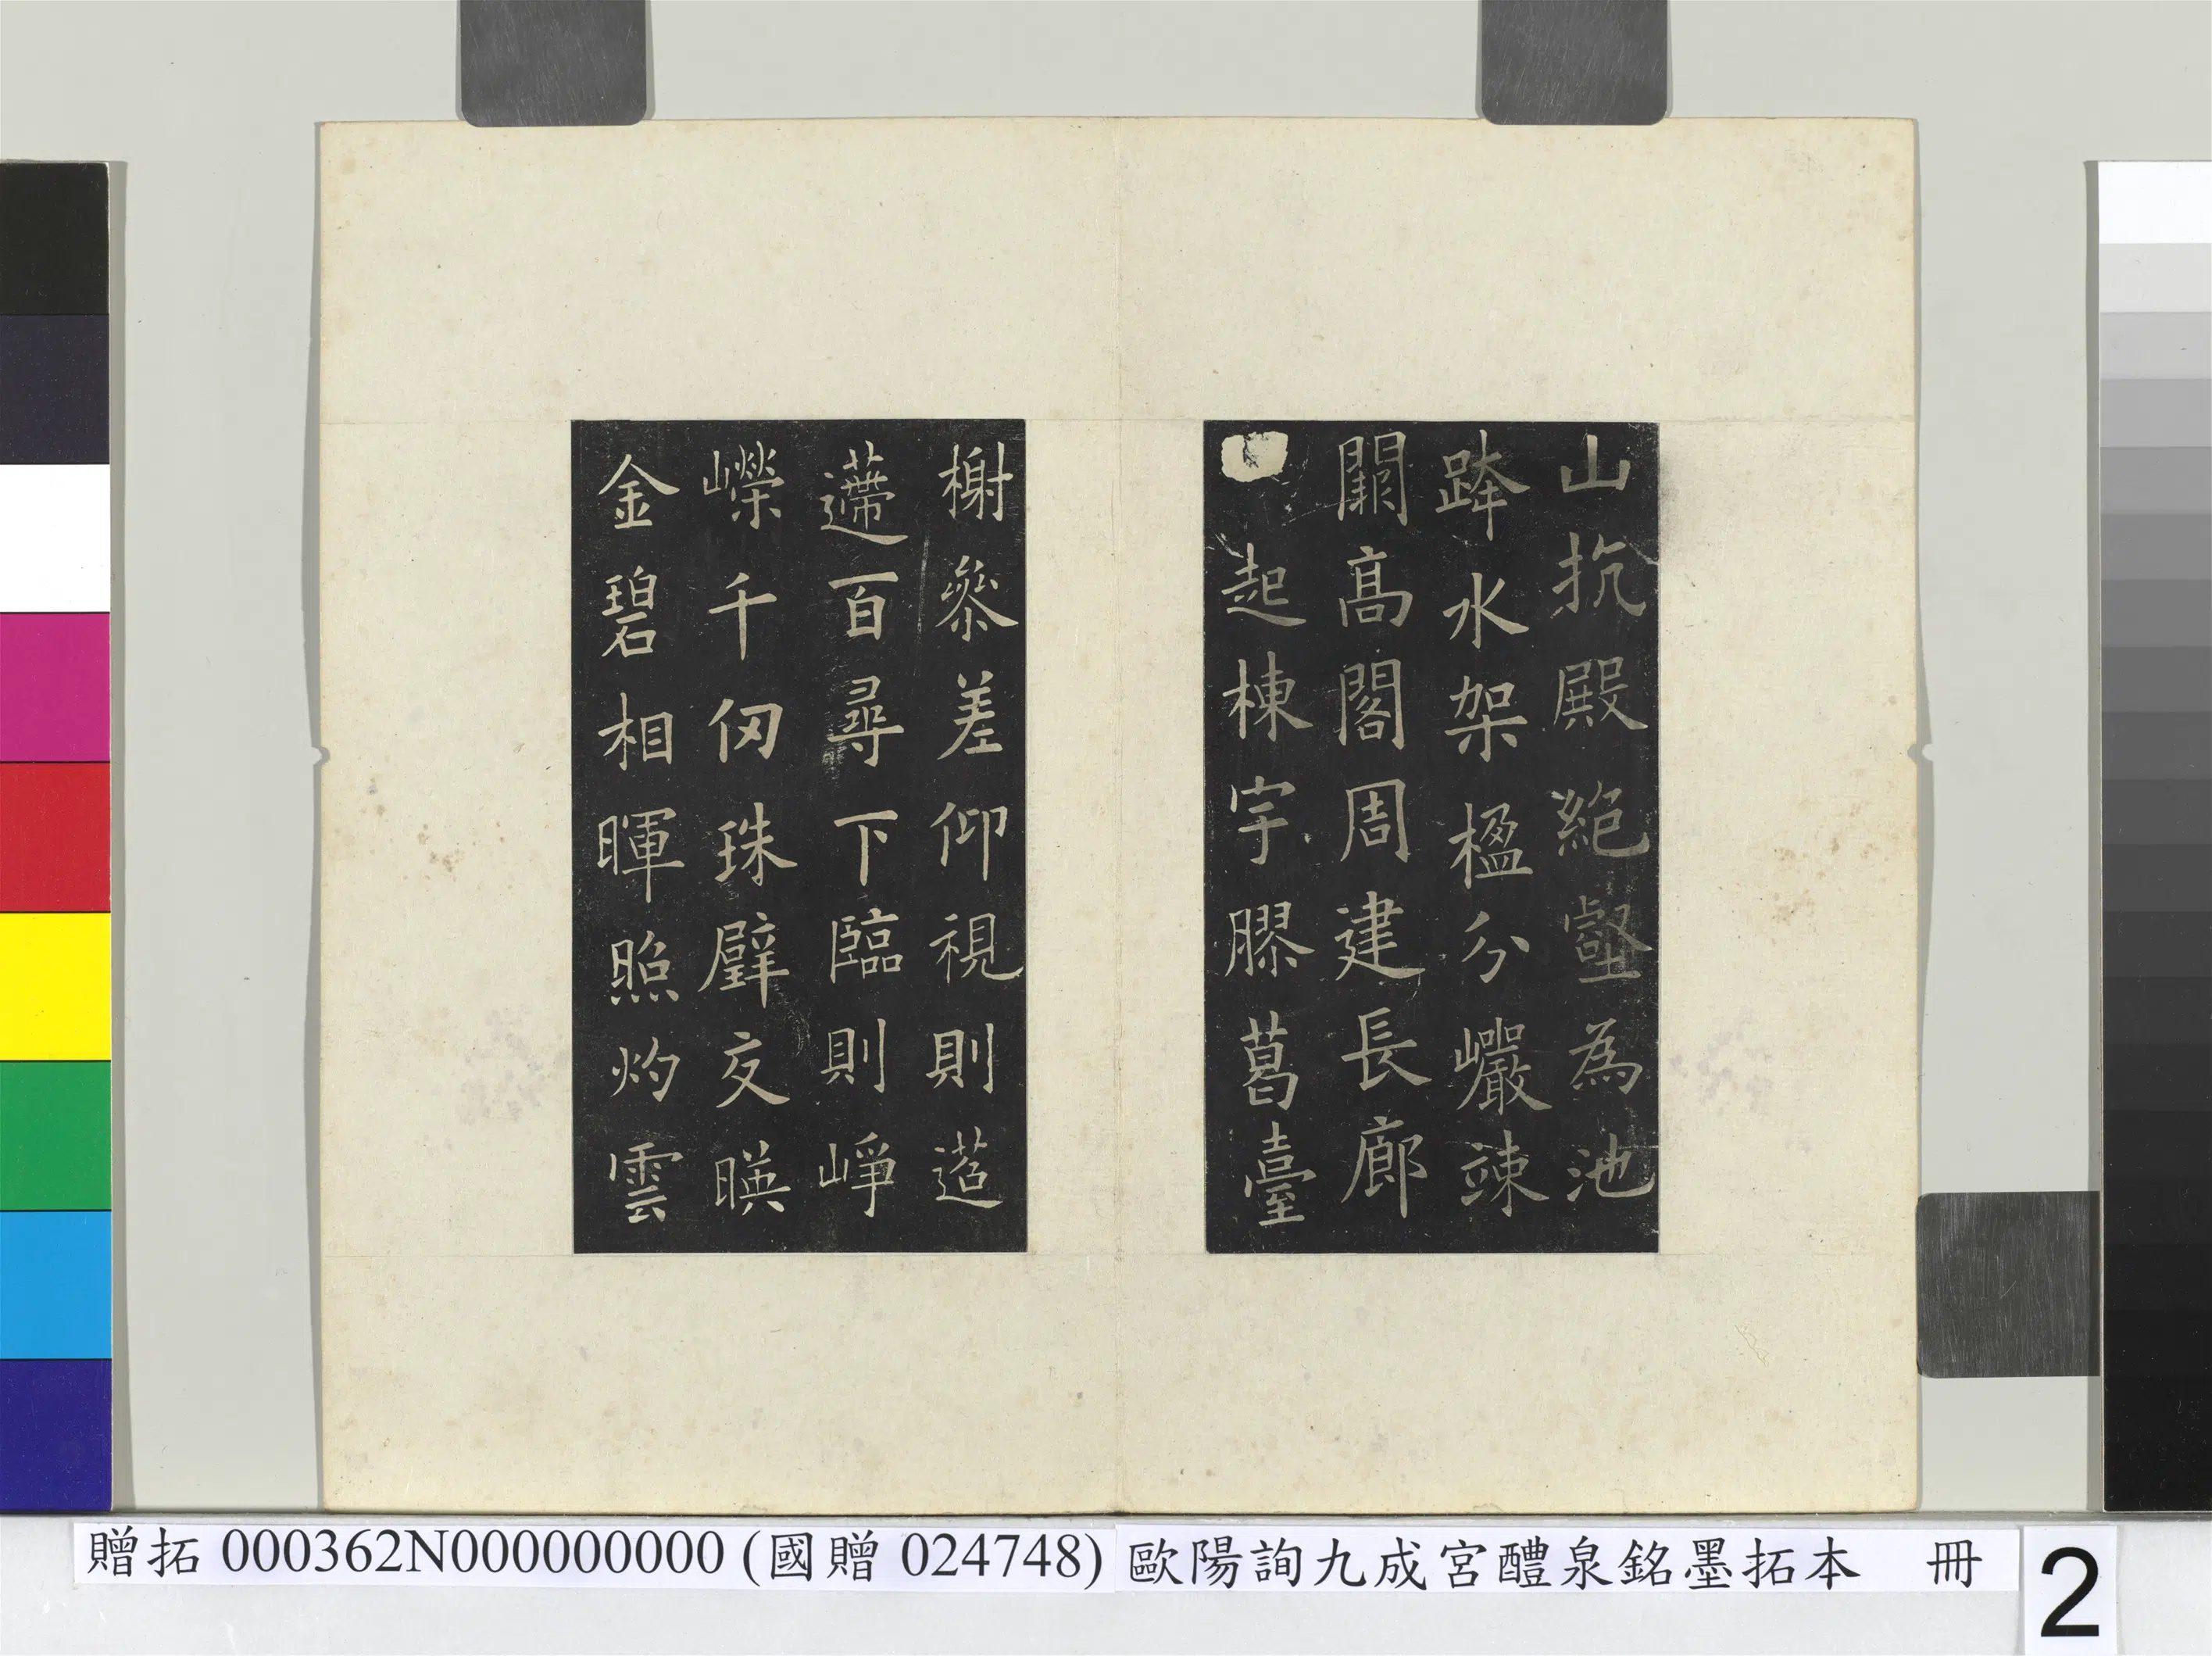 山抗殿絕壑為池
跨水架楹分巖竦
闕高閣周建長廊
起棟宇膠葛臺
榭參差仰視則迢
遰百尋下臨則崢
嶸千仞珠璧交暎
金碧相暉照灼雲
贈拓000362N000000000 (國贈024748) 歐陽詢九成宮醴泉銘墨拓本 冊
2